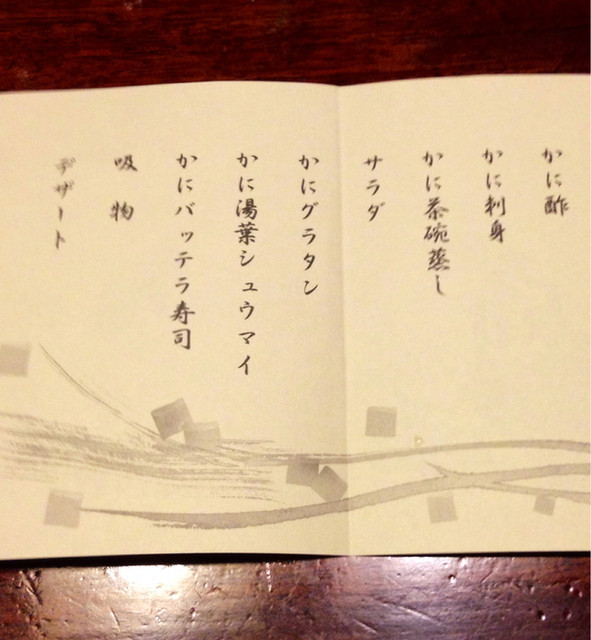 かに酢
かに刺身
かに茶碗蒸し
サラダ
かにグラタン
かに湯葉シュウマイ
かにバッテラ寿司
吸物
デザート